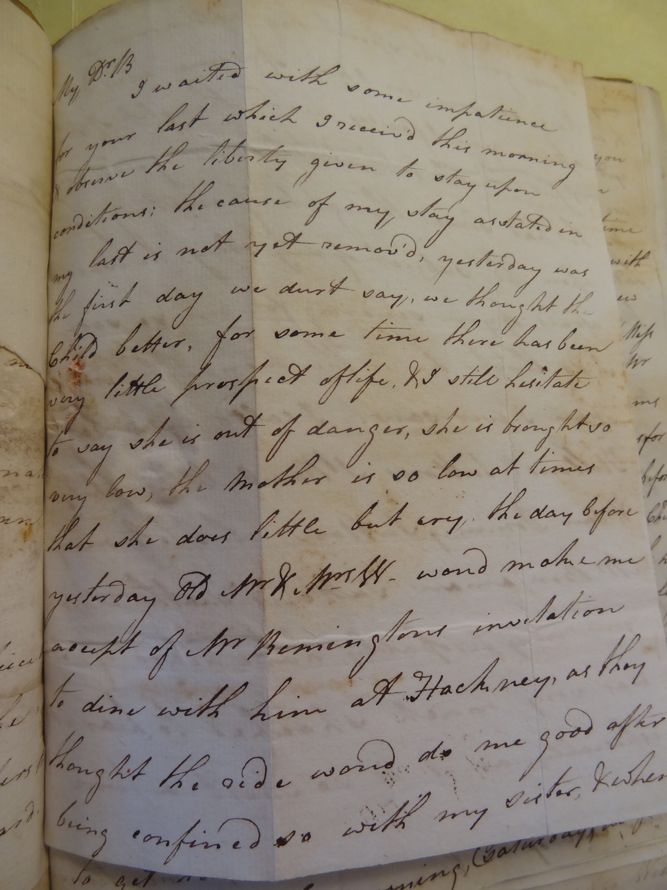 My Dr. B
I waited with some impatience
for your last which I receiv'd this morning
& observe the liberty given to stay upon
conditions: the cause of my stay as stated in
my last is not yet remov'd, yesterday was
the first day we durst say, we thought the
Child better, for some time there has been
very little prospect of life, & I still hesitate
to say she is out of danger, she is brought so
very low, the Mother is so low at times
that she does little but cry. the day before
yesterday old Mr & Mrs W- woud make me
accept of Mr Remingtons invitation
to dine with him at Hackney, as they
thought the ride woud do me good after
being confined so with my sister, & when
to get
ning, (Saturday,
you
time
with
for
before